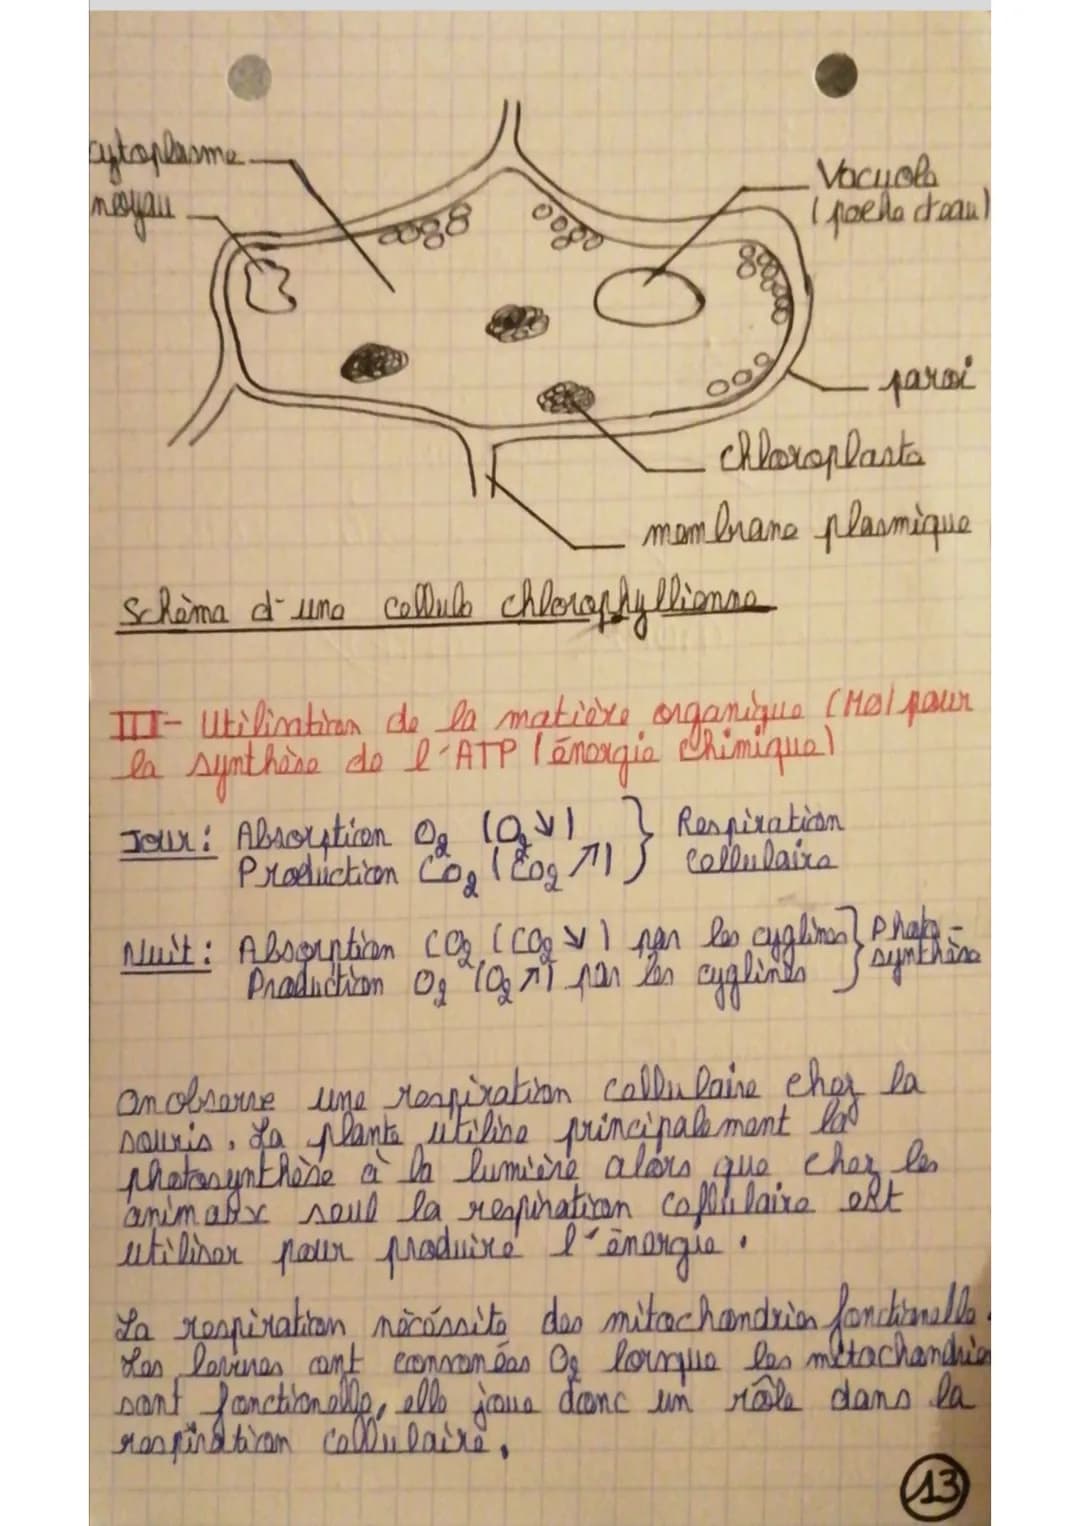 cytoplasme
noyau
Vacuole
(poche d'eau)
paroi
chloroplaste
membrane plasmique
Schèma d'une cellule chlorophyllienne
III- Utilisation de la matière organique (MO) pour
la synthèse de l'ATP (énergie chimique)
Jour : Absorption O2 (O2 ↘) } Respiration
Production CO2 (CO2 ↗) } cellulaire
Nuit : Absorption CO2 (CO2 ↘) par les cyglines } Photo-
Production O2 (O2 ↗) par les cyglines } synthèse
On observe une respiration cellulaire chez la
souris. La plante utilise principalement la
photosynthèse à la lumière alors que chez les
animaux seul la respiration cellulaire est
utiliser pour produire l'énergie.
La respiration nècéssite des mitochondries fonctionelle.
Les levures ont consomées O2 lorsque les mitochondries
sont fonctionelle, elle joue donc un rôle dans la
respiration cellulaire.
13